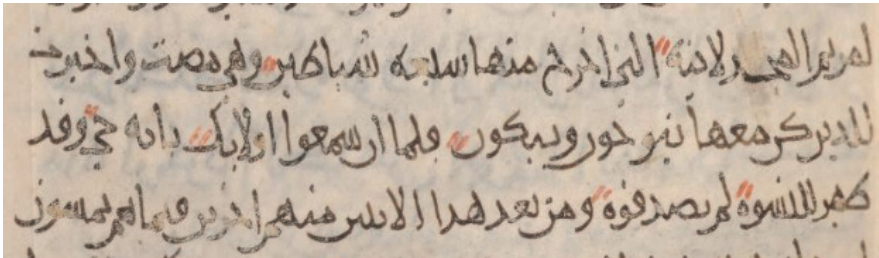 لمريم المجدلانية التي اخرج منها سبعه شياطين وهي مضت واخبرت
للذين كن معها ينوحون ويبكون فلما ان سمعوا اولايك بانه حي وقد
ظهر للنسوة لم يصدقوه ومن بعد هذا الاثنين منهم اخرين فيما هم يمشون